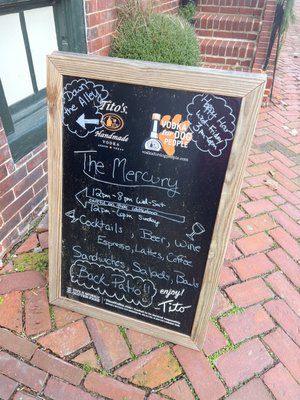 Down
the
Alley
Tito's
Handmade
VODKA
VODKA
FOR DOG
PEOPLE
vodkafordogpeople.com
Happy
West
Friday
The Mercury
12pm-8pm Wed-Sat
12pm-6pm Sunday
Cocktails, Beer, Wine
Espresso, Lattes, Coffee
Sandwiches, Salads, Bar
Back Patio!!
enjoy!
Tito